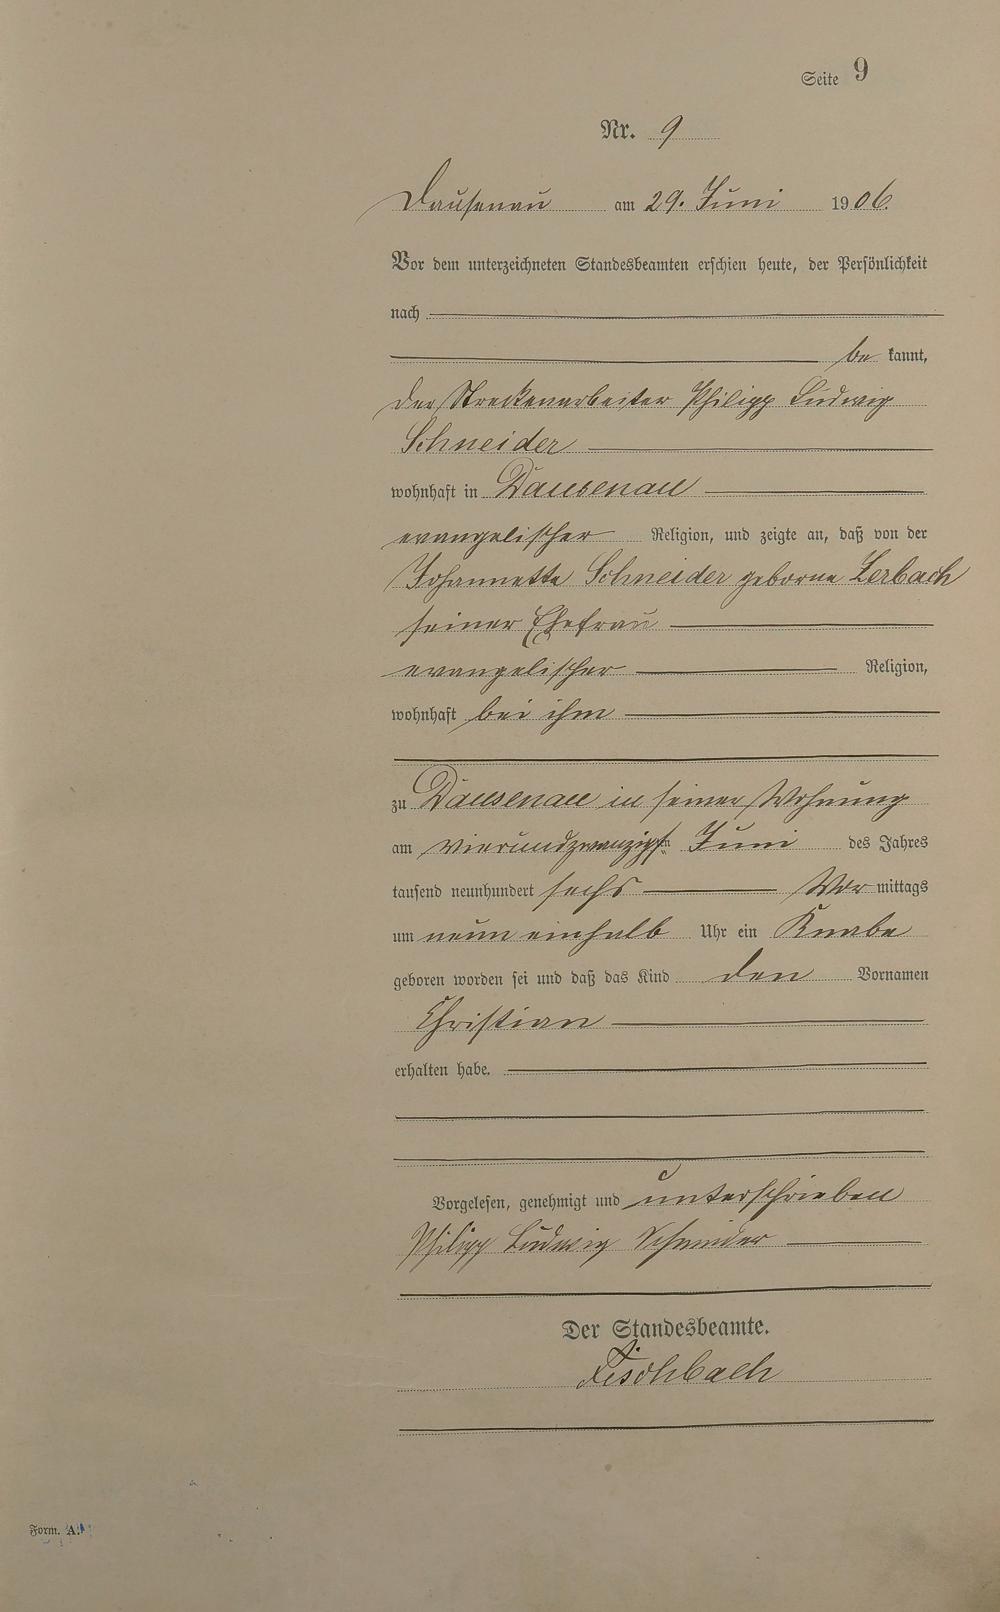 Seite 9
Nr. 9
Dausenau am 29. Juni 1906.
Vor dem unterzeichneten Standesbeamten erschien heute, der Persönlichkeit
nach
be kannt,
der Streckenarbeiter Philipp Ludwig
Schneider
wohnhaft in Dausenau
evangelischer Religion, und zeigte an, daß von der
Johannette Schneider geborne Zerbach
seiner Ehefrau
evangelischer Religion,
wohnhaft bei ihm
zu Dausenau in seiner Wohnung
am vierundzwanzigsten Juni des Jahres
tausend neunhundert sechs Vor mittags
um neun einhalb Uhr ein Knabe
geboren worden sei und daß das Kind den Vornamen
Christian
erhalten habe.
Vorgelesen, genehmigt und unterschrieben
Philipp Ludwig Schneider
Der Standesbeamte.
Fischbach
Form. A.